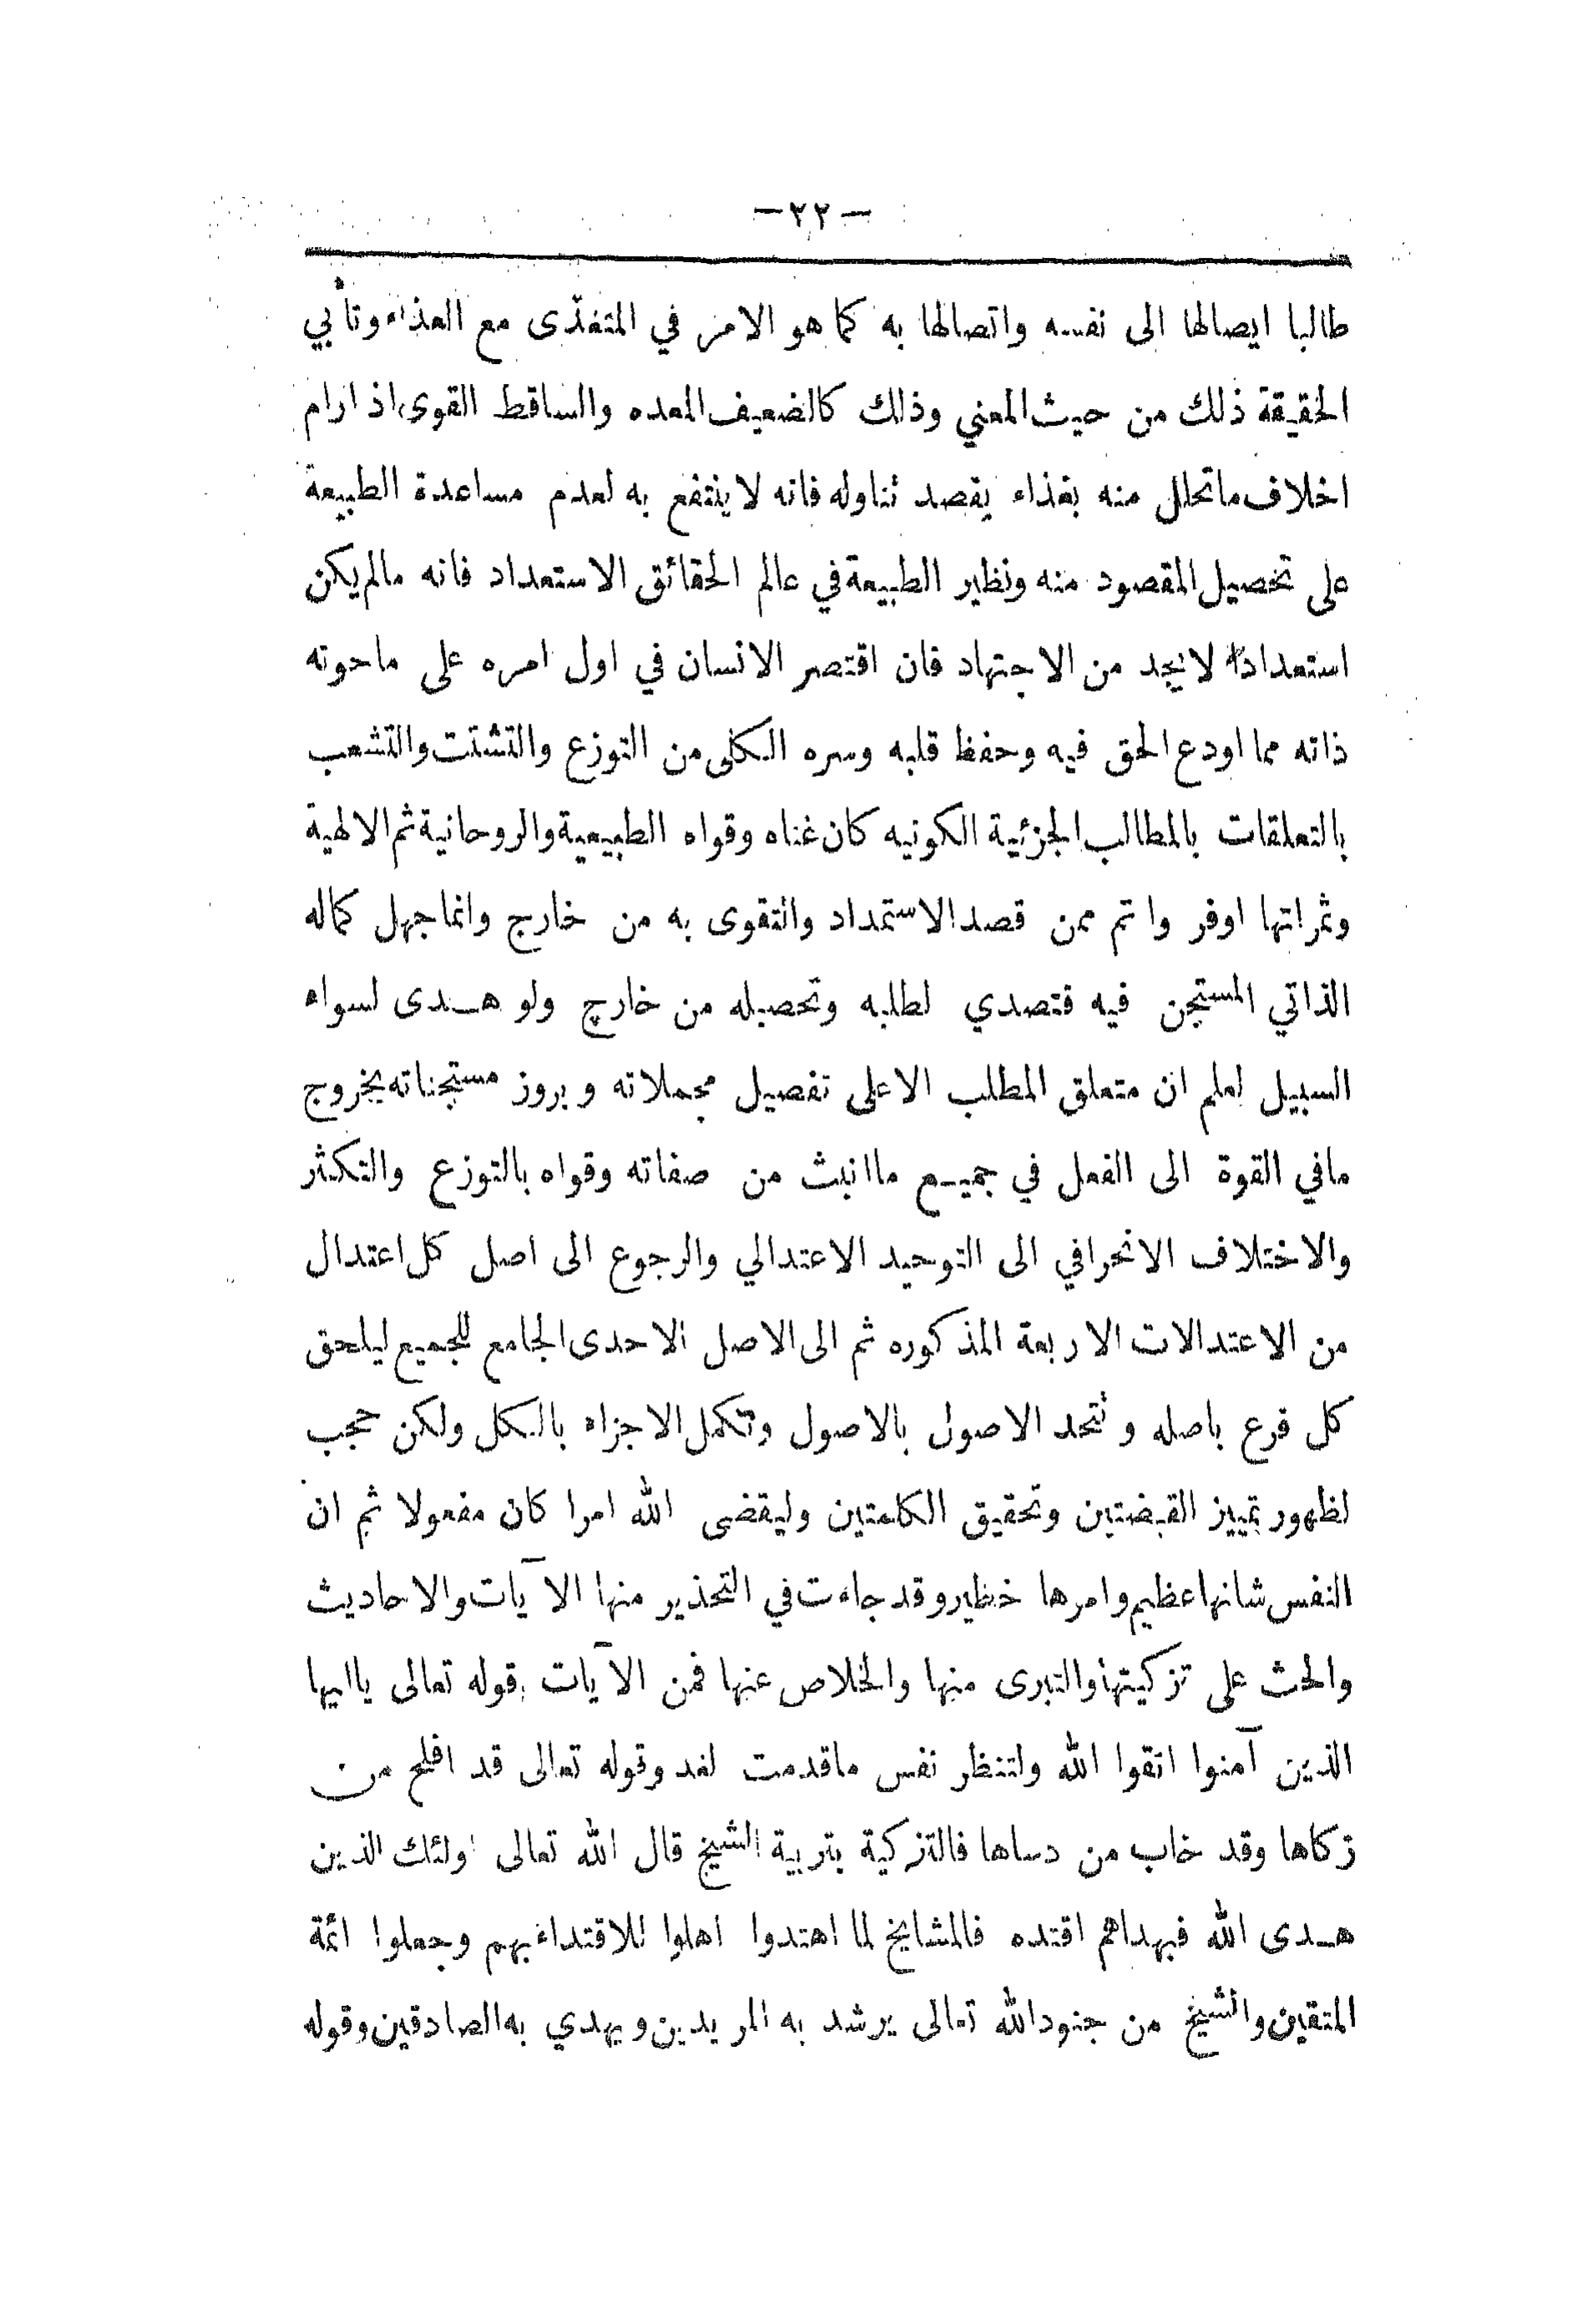 —٢٢—
طالبا ايصالها الى نفسه واتصالها به كما هو الامر في المتغذى مع الغذاء وتأبي
الحقيقة ذلك من حيث المعني وذلك كالضعيف المعده والساقط القوى اذ ارام
اخلاف ماتحلل منه بغذاء يقصد تناوله فانه لاينتفع به لعدم مساعدة الطبيعة
على تحصيل المقصود منه ونظير الطبيعة في عالم الحقائق الاستعداد فانه مالم يكن
استعدادا لايجد من الاجتهاد فان اقتصر الانسان في اول امره على ماحوته
ذاته مما اودع الحق فيه وحفظ قلبه وسره الكلى من التوزع والتشتت والتشعب
بالتعلقات بالمطالب الجزئية الكونيه كان غناه وقواه الطبيعية والروحانية ثم الالهية
وثمراتها اوفر واتم ممن قصد الاستمداد والتقوى به من خارج وانما جهل كماله
الذاتي المستجن فيه فتصدي لطلبه وتحصيله من خارج ولو هدى لسواء
السبيل لعلم ان متعلق المطلب الاعلى تفصيل مجملاته وبروز مستجناته بخروج
مافي القوة الى الفعل في جميع ماانبث من صفاته وقواه بالتوزع والتكثر
والاختلاف الانحرافي الى التوحيد الاعتدالي والرجوع الى اصل كل اعتدال
من الاعتدالات الاربعة المذكوره ثم الى الاصل الاحدى الجامع للجميع ليلحق
كل فرع باصله وتتحد الاصول بالاصول وتكمل الاجزاء بالكل ولكن حجب
لظهور تمييز القبضتين وتحقيق الكلمتين وليقضى الله امرا كان مفعولا ثم ان
النفس شانها عظيم وامرها خطير وقد جاءت في التحذير منها الآيات والاحاديث
والحث على تزكيتها والتبرى منها والخلاص عنها فمن الآيات قوله تعالى ياايها
الذين آمنوا اتقوا الله ولتنظر نفس ماقدمت لغد وقوله تعالى قد افلح من
زكاها وقد خاب من دساها فالتزكية بتربية الشيخ قال الله تعالى اولئك الذين
هدى الله فبهداهم اقتده فالمشايخ لما اهتدوا اهلوا للاقتداء بهم وجعلوا ائمة
المتقين والشيخ من جنود الله تعالى يرشد به المريدين ويهدي به الصادقين وقوله